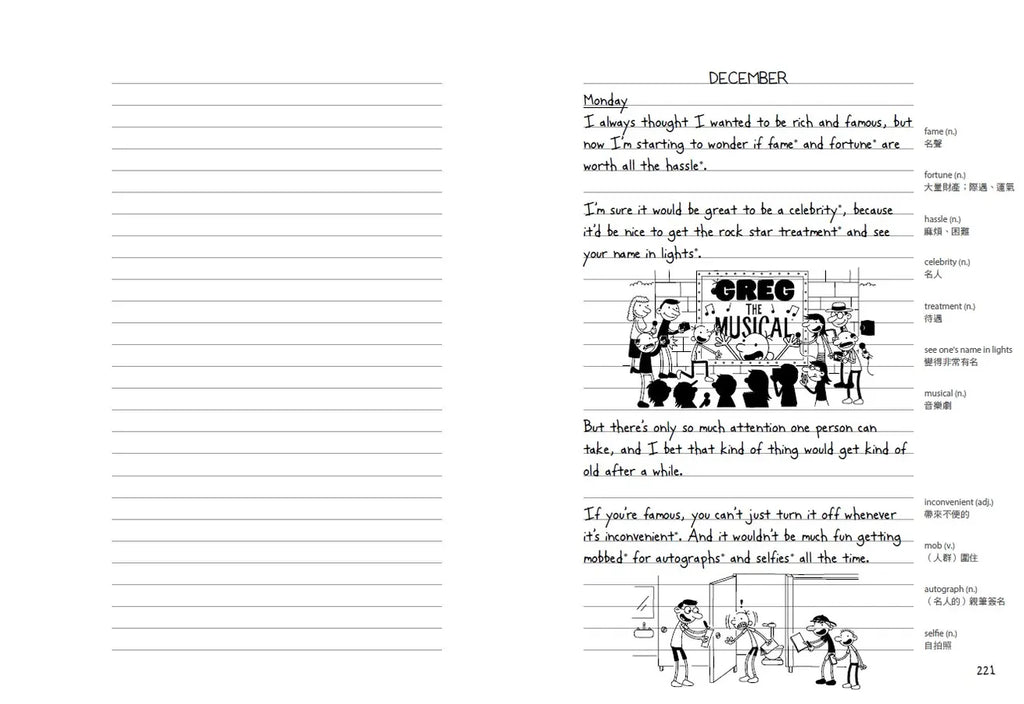 DECEMBER
Monday
I always thought I wanted to be rich and famous, but
now I'm starting to wonder if fame* and fortune* are
worth all the hassle*.
I'm sure it would be great to be a celebrity*, because
it'd be nice to get the rock star treatment* and see
your name in lights*.
GREG
THE
MUSICAL
But there's only so much attention one person can
take, and I bet that kind of thing would get kind of
old after a while.
If you're famous, you can't just turn it off whenever
it's inconvenient*. And it wouldn't be much fun getting
mobbed* for autographs* and selfies* all the time.
!
fame (n.)
名聲
fortune (n.)
大量財產；際遇、運氣
hassle (n.)
麻煩、困難
celebrity (n.)
名人
treatment (n.)
待遇
see one's name in lights
變得非常有名
musical (n.)
音樂劇
inconvenient (adj.)
帶來不便的
mob (v.)
（人群）圍住
autograph (n.)
（名人的）親筆簽名
selfie (n.)
自拍照
221